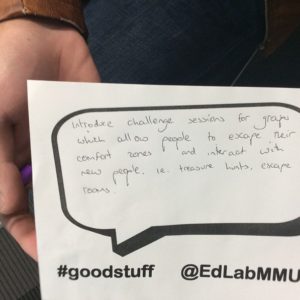 Introduce challenge sessions for groups
which allow people to escape their
comfort zones and interact with
new people. i.e. treasure hunts, escape
rooms.
#goodstuff @EdLabMMU